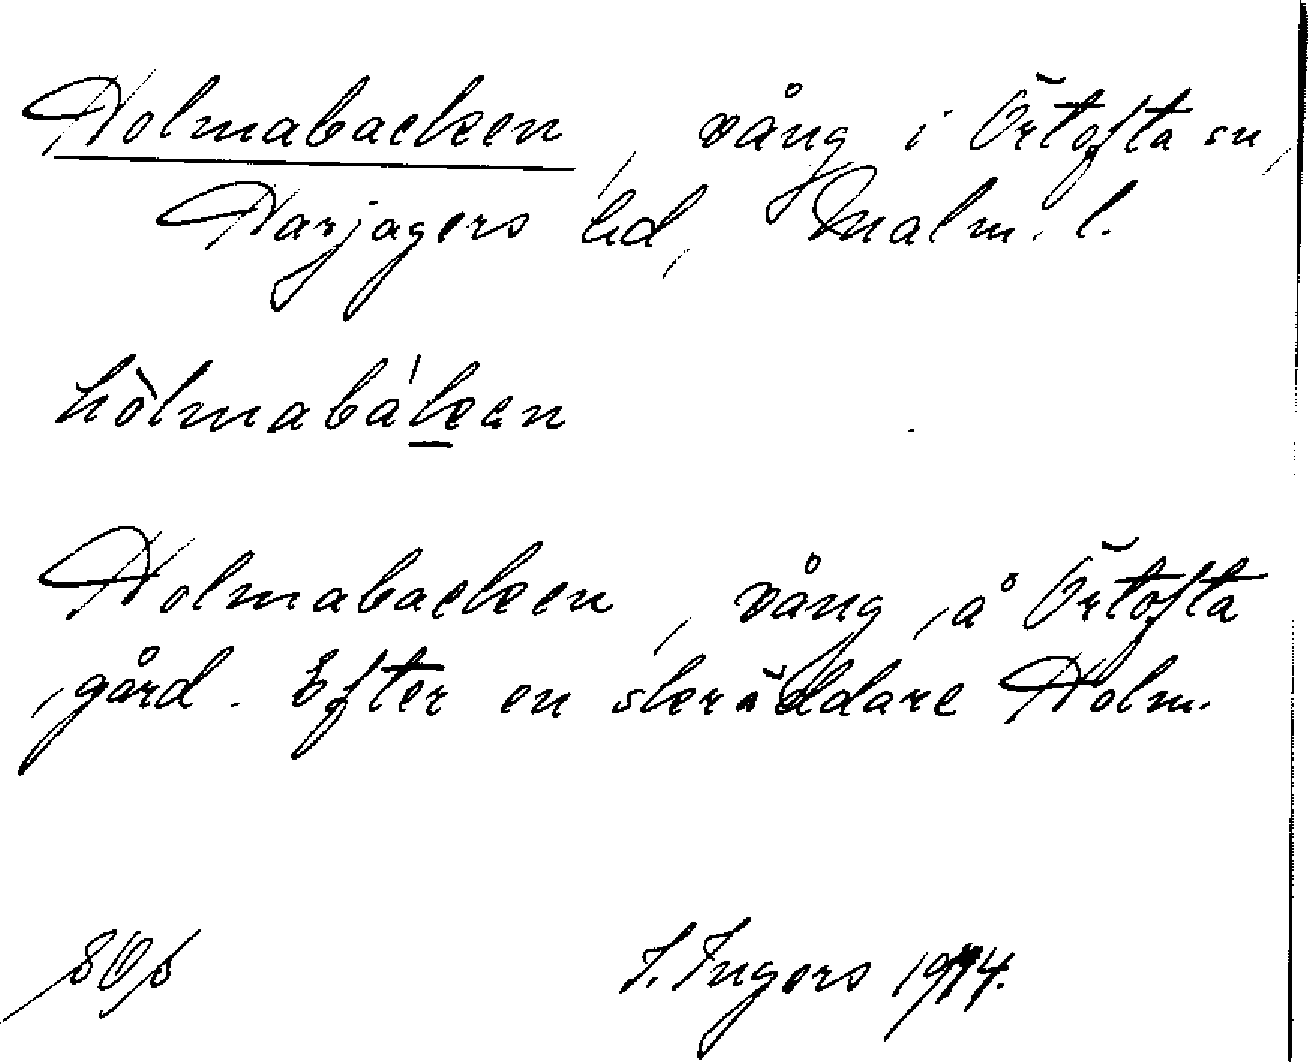 Holmabacken, vång i Örtofta sn,
Harjagers hd, Malm. l.
hòlmabáken
Holmabacken, vång å Örtofta
gård. Efter en skräddare Holm.
I. Ingers 1944.